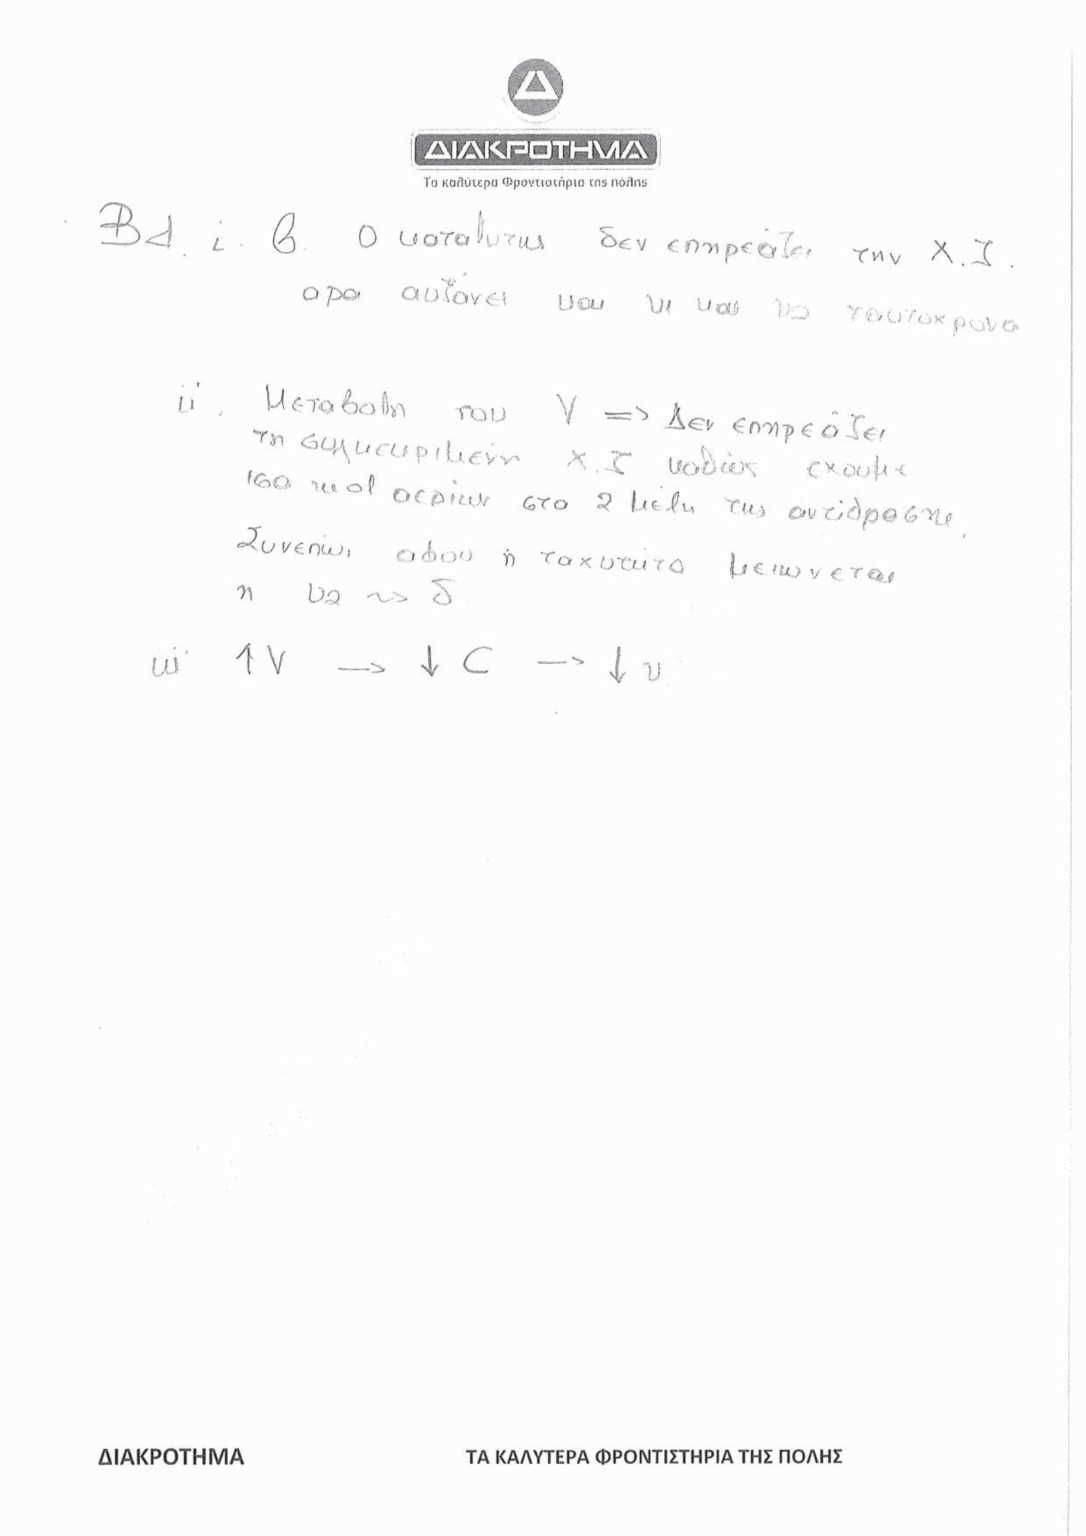 ΔΙΑΚΡΟΤΗΜΑ
Τα καλύτερα Φροντιστήρια της πόλης
B1. i. β. Ο καταλυτης δεν επηρεάζει την Χ.Ι.
αρα αυξάνει και υ1 και υ2 ταυτοχρονα
ii. Μεταβολη του V => Δεν επηρεάζει
τη συγκεκριμενη Χ.Ι καθώς εχουμε
ισα mol αεριων στα 2 μελη της αντίδρασης.
Συνεπώς αφου η ταχυτητα μειωνεται
η υ2 ~> δ
iii ↑V —> ↓C —> ↓υ
ΔΙΑΚΡΟΤΗΜΑ ΤΑ ΚΑΛΥΤΕΡΑ ΦΡΟΝΤΙΣΤΗΡΙΑ ΤΗΣ ΠΟΛΗΣ